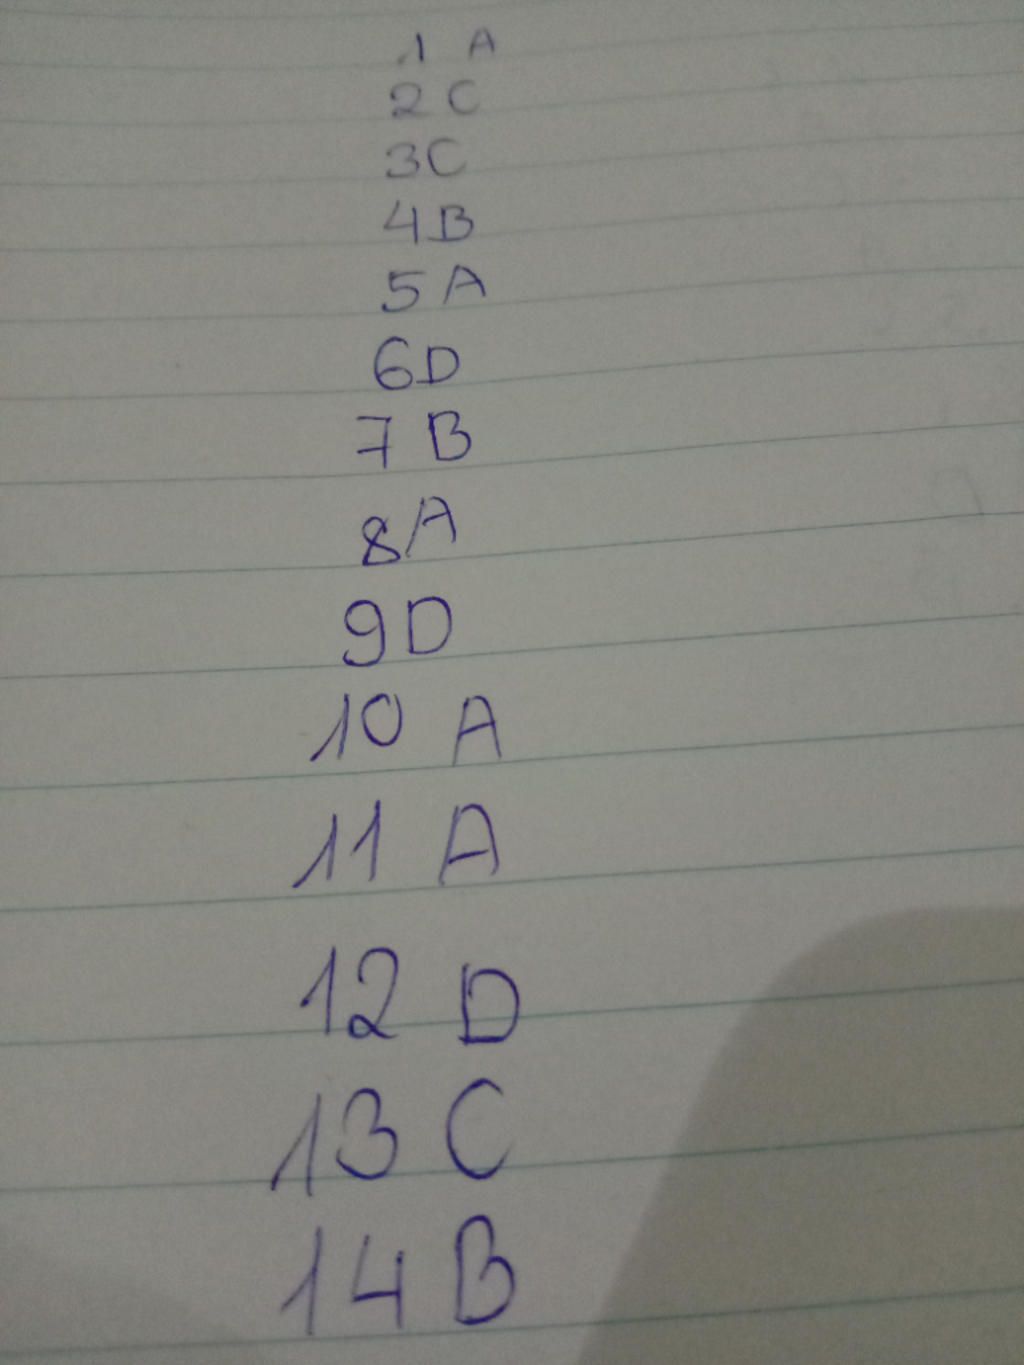 1 A
2 C
3 C
4 B
5 A
6 D
7 B
8 A
9 D
10 A
11 A
12 D
13 C
14 B